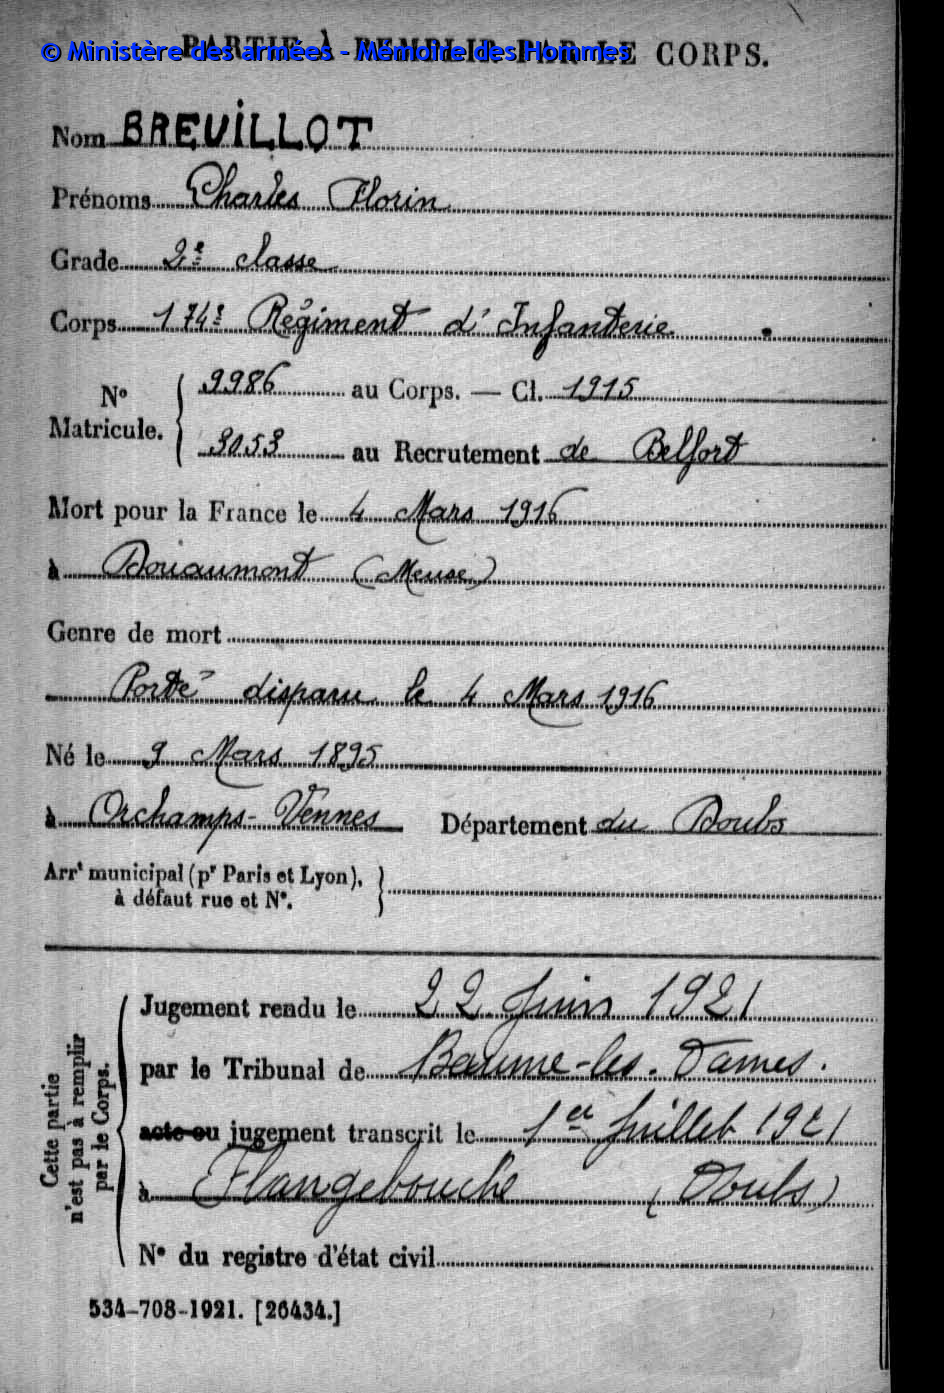 PARTIE À REMPLIR PAR LE CORPS.
© Ministère des armées - Mémoire des Hommes
Nom BREUILLOT
Prénoms Charles Florin
Grade 2e classe
Corps 174e Régiment d'Infanterie
No Matricule. { 9986 au Corps. — Cl. 1915
3053 au Recrutement de Belfort
Mort pour la France le 4 Mars 1916
à Douaumont (Meuse)
Genre de mort
Porté disparu le 4 Mars 1916
Né le 9 Mars 1895
à Orchamps-Vennes Département du Doubs
Arrt municipal (pr Paris et Lyon),
à défaut rue et No.
Cette partie
n'est pas à remplir
par le Corps.
Jugement rendu le 22 Juin 1921
par le Tribunal de Baume-les-Dames.
acte ou jugement transcrit le 1er Juillet 1921
à Flangebouche (Doubs)
No du registre d'état civil
534-708-1921. [26434.]